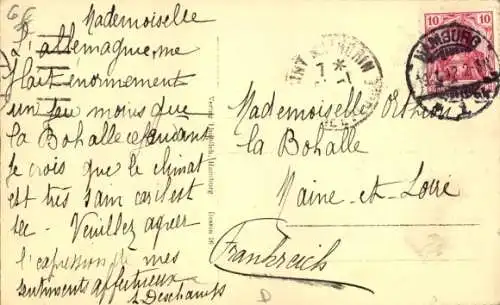 Mademoiselle
L'allemagne me
plait énormement
un peu moins que
la Bohalle cependant
je crois que le climat
est très sain car c'est
sec - Veuillez agréer
l'expression de mes
sentiments affectueux
Deschamps
10 10
HAMBURG
Mademoiselle
La Bohalle
Maine-et-Loire
Frankreich
D